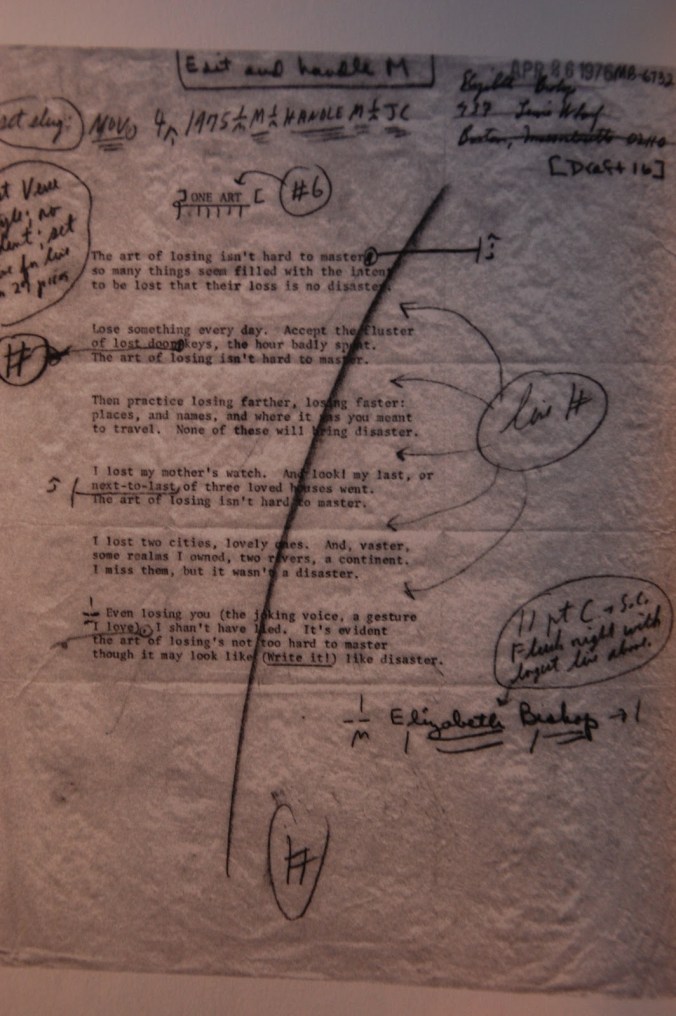 Edit and handle M
APR 26 1976 MB-6732
Elizabeth Bishop
437 Lewis Wharf
Boston, Massachusetts 02110
[Draft 16]
set slug: NOV 4, 1975 1/M 1/ HANDLE M 1/ JC
ONE ART
#6
The art of losing isn't hard to master;
so many things seem filled with the intent
to be lost that their loss is no disaster.
Lose something every day. Accept the fluster
of lost door keys, the hour badly spent.
The art of losing isn't hard to master.
Then practice losing farther, losing faster:
places, and names, and where it was you meant
to travel. None of these will bring disaster.
I lost my mother's watch. And look! my last, or
next-to-last, of three loved houses went.
The art of losing isn't hard to master.
I lost two cities, lovely ones. And, vaster,
some realms I owned, two rivers, a continent.
I miss them, but it wasn't a disaster.
Even losing you (the joking voice, a gesture
I love). I shan't have lied. It's evident
the art of losing's not too hard to master
though it may look like (Write it!) like disaster.
#
line #
11 pt C + S.C.
Flush right with
longest line above.
Elizabeth Bishop
#